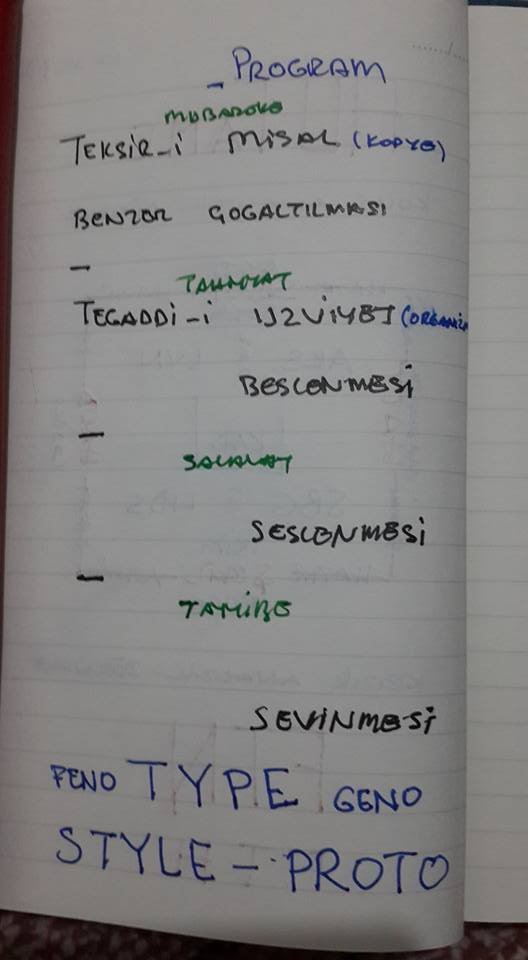 _ PROGRAM
MUBAREKE
TEKSİR_İ MİSAL (KOPYE)
BENZER ÇOGALTILMASI
–
TAHİYYAT
TEGADDİ_İ UZVİYET (ORGANİZ
BESLENMESİ
–
SALAVAT
SESLENMESİ
–
TAYİBE
SEVİNMESİ
FENO TYPE GENO
STYLE – PROTO